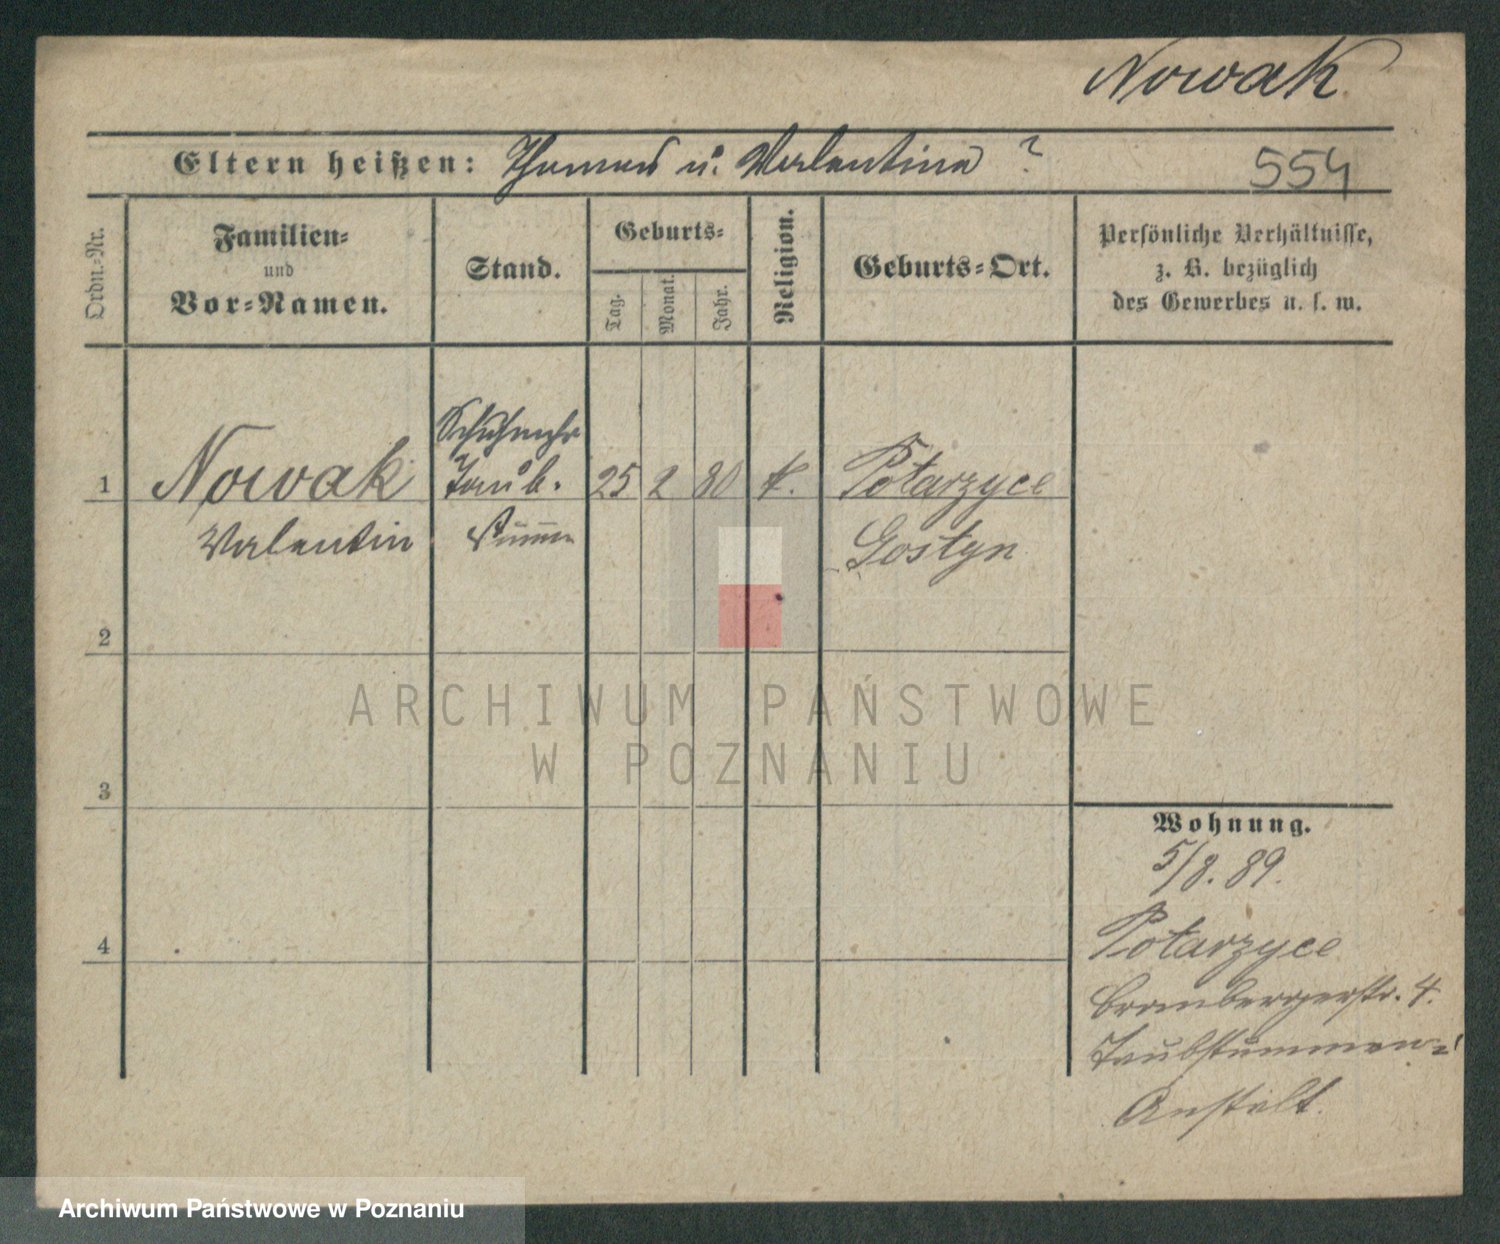 Nowak
Eltern heißen: Thomas u. Valentina ?
554
Ordn.-Nr.
Familien-
und
Vor-Namen.
Stand.
Geburts-
Tag.
Monat.
Jahr.
Religion.
Geburts-Ort.
Persönliche Verhältnisse,
z. B. bezüglich
des Gewerbes u. s. w.
1
Nowak
Valentin
Taub.
Stumm
25 2 80
k.
Potarzyce
Gostyn
2
3
4
ARCHIWUM PAŃSTWOWE
W POZNANIU
Wohnung.
5/8. 89.
Potarzyce
Brombergerstr. 4.
Taubstummen-
Anstalt.
Archiwum Państwowe w Poznaniu